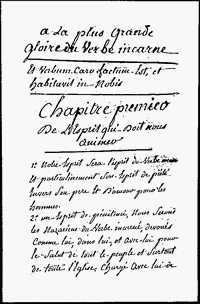 a La plus Grande
gloire du Verbe incarne
Et Verbum Caro factum Est, et
habitavit in Nobis
Chapitre premier
De L'Esprit qui Doit nous
animer
1º Notre Esprit Sera l'esprit du Verbe
Et particulièrement Son Esprit de piété
Envers Son pere Et D'amour pour les
hommes.
2º un Esprit de
Nous Serons
les Nazaréens du Verbe incarné, devoués
Comme lui, dans lui, et avec lui pour
le Salut de tout le peuple et Surtout
de toute l'Eglise, Chargé avec lui de